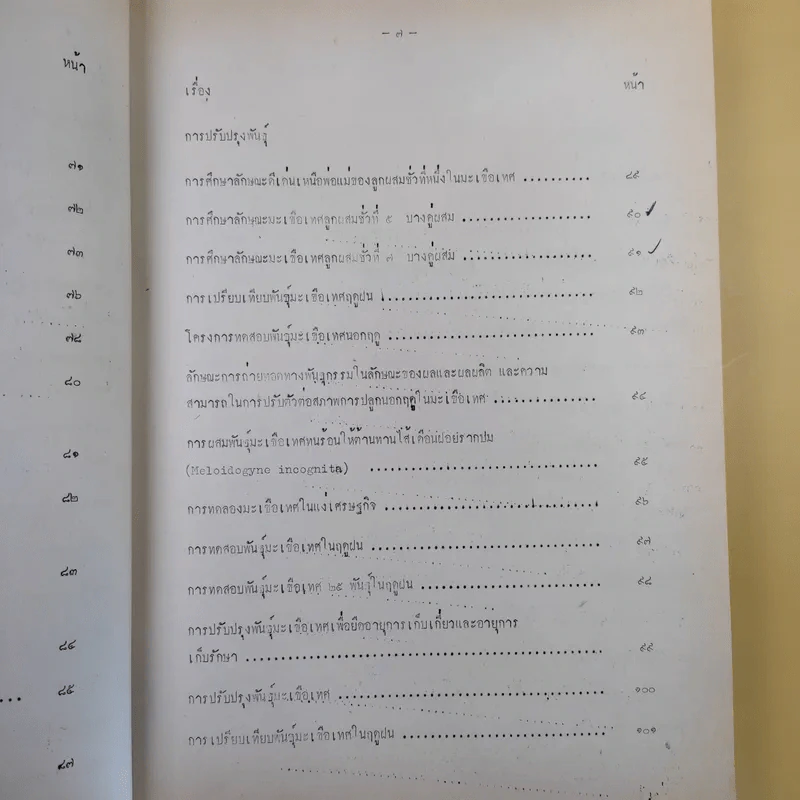 หน้า
๗๑
๗๒
๗๓
๗๖
๗๘
๘๐
๘๑
๘๒
๘๓
๘๔
๘๕
๘๗
- ๗ -
เรื่อง หน้า
การปรับปรุงพันธุ์
การศึกษาลักษณะดีเด่นเหนือพ่อแม่ของลูกผสมชั่วที่หนึ่งในมะเขือเทศ .......... ๘๙
การศึกษาลักษณะมะเขือเทศลูกผสมชั่วที่ ๕ บางคู่ผสม .................... ๙๐
การศึกษาลักษณะมะเขือเทศลูกผสมชั่วที่ ๗ บางคู่ผสม .................... ๙๑
การเปรียบเทียบพันธุ์มะเขือเทศฤดูฝน .............................. ๙๒
โครงการทดสอบพันธุ์มะเขือเทศนอกฤดู .............................. ๙๓
ลักษณะการถ่ายทอดทางพันธุกรรมในลักษณะของผลและผลผลิต และความ
สามารถในการปรับตัวต่อสภาพการปลูกนอกฤดูในมะเขือเทศ ................ ๙๔
การผสมพันธุ์มะเขือเทศทนร้อนให้ต้านทานไส้เดือนฝอยรากปม
(Meloidogyne incognita) .............................. ๙๕
การทดลองมะเขือเทศในแง่เศรษฐกิจ .............................. ๙๖
การทดสอบพันธุ์มะเขือเทศในฤดูฝน .............................. ๙๗
การทดสอบพันธุ์มะเขือเทศ ๒๕ พันธุ์ในฤดูฝน ........................ ๙๘
การปรับปรุงพันธุ์มะเขือเทศเพื่อยืดอายุการเก็บเกี่ยวและอายุการ
เก็บรักษา ................................................ ๙๙
การปรับปรุงพันธุ์มะเขือเทศ .................................. ๑๐๐
การเปรียบเทียบพันธุ์มะเขือเทศในฤดูฝน ............................ ๑๐๑